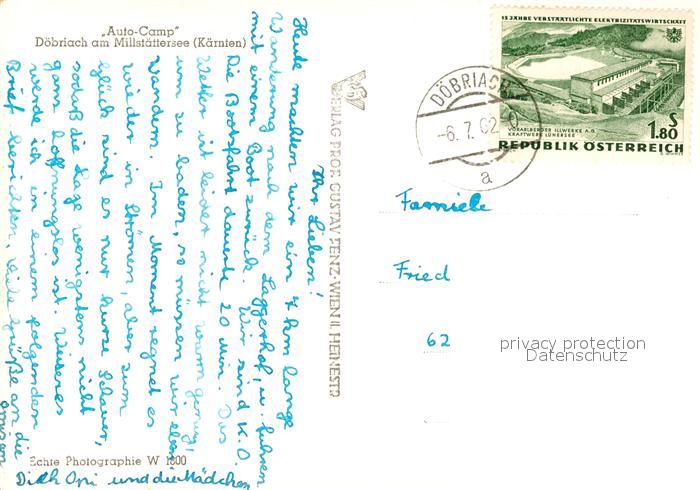 „Auto-Camp"
Döbriach am Millstättersee (Kärnten)
Ihr Lieben!
Heute machten wir ein 4 km lange
Wanderung nach dem Laggerhof, u. fuhren
mit einem Boot zurück. Wir sind K.O.
Die Bootsfahrt dauerte 20 Min. Das
Wetter ist leider nicht warm genug,
um zu baden, so müssen wir eben
wandern. Im Moment regnet es
wieder in Strömen, aber zum
Glück sind es nur kurze Schauer,
sodaß die Lage wenigstens nicht
ganz hoffnungslos ist. Weiteres
werde ich in einem folgenden
Brief berichten. Viele Grüße an die
Omi
Dich Opi und die Mädchen
Echte Photographie W 1800
VERLAG PROF. GUSTAV FENZ·WIEN II, HEINESTR
15 JAHRE VERSTAATLICHTE ELEKTRIZITÄTSWIRTSCHAFT
VORARLBERGER ILLWERKE A.G.
KRAFTWERK LÜNERSEE
S
1.80
REPUBLIK ÖSTERREICH
DÖBRIACH
-6.7.62
a
Familie
Fried
62
privacy protection
Datenschutz